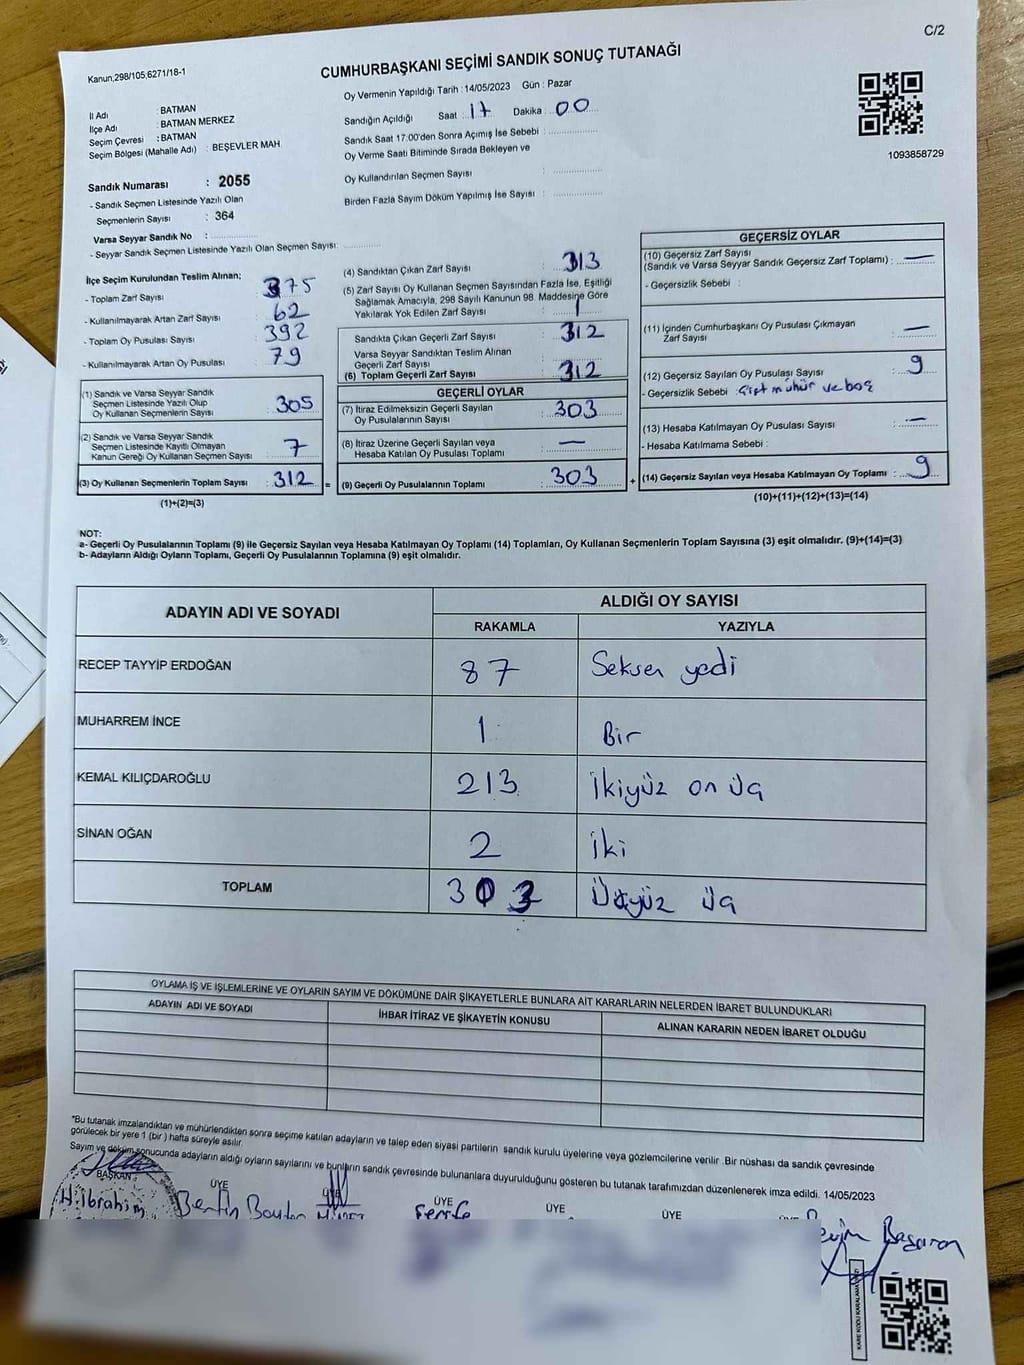 C/2
Kanun,298/105,6271/18-1
CUMHURBAŞKANI SEÇİMİ SANDIK SONUÇ TUTANAĞI
İl Adı : BATMAN
İlçe Adı : BATMAN MERKEZ
Seçim Çevresi : BATMAN
Seçim Bölgesi (Mahalle Adı) : BEŞEVLER MAH
Sandık Numarası : 2055
- Sandık Seçmen Listesinde Yazılı Olan
Seçmenlerin Sayısı : 364
Varsa Seyyar Sandık No :
- Seyyar Sandık Seçmen Listesinde Yazılı Olan Seçmen Sayısı:
Oy Vermenin Yapıldığı Tarih : 14/05/2023 Gün : Pazar
Sandığın Açıldığı Saat 17 Dakika 00
Sandık Saat 17:00'den Sonra Açımış İse Sebebi :
Oy Verme Saati Bitiminde Sırada Bekleyen ve
Oy Kullandırılan Seçmen Sayısı :
Birden Fazla Sayım Döküm Yapılmış İse Sayısı :
1093858729
İlçe Seçim Kurulundan Teslim Alınan;
- Toplam Zarf Sayısı : 375
- Kullanılmayarak Artan Zarf Sayısı : 62
- Toplam Oy Pusulası Sayısı : 392
- Kullanılmayarak Artan Oy Pusulası : 79
(1) Sandık ve Varsa Seyyar Sandık
Seçmen Listesinde Yazılı Olup
Oy Kullanan Seçmenlerin Sayısı : 305
(2) Sandık ve Varsa Seyyar Sandık
Seçmen Listesinde Kayıtlı Olmayan
Kanun Gereği Oy Kullanan Seçmen Sayısı : 7
(3) Oy Kullanan Seçmenlerin Toplam Sayısı : 312 =
(1)+(2)=(3)
(4) Sandıktan Çıkan Zarf Sayısı : 313
(5) Zarf Sayısı Oy Kullanan Seçmen Sayısından Fazla İse, Eşitliği
Sağlamak Amacıyla, 298 Sayılı Kanunun 98. Maddesine Göre
Yakılarak Yok Edilen Zarf Sayısı : 1
Sandıkta Çıkan Geçerli Zarf Sayısı : 312
Varsa Seyyar Sandıktan Teslim Alınan
Geçerli Zarf Sayısı :
(6) Toplam Geçerli Zarf Sayısı : 312
GEÇERLİ OYLAR
(7) İtiraz Edilmeksizin Geçerli Sayılan
Oy Pusulalarının Sayısı : 303
(8) İtiraz Üzerine Geçerli Sayılan veya
Hesaba Katılan Oy Pusulası Toplamı : —
(9) Geçerli Oy Pusulalarının Toplamı : 303 +
GEÇERSİZ OYLAR
(10) Geçersiz Zarf Sayısı
(Sandık ve Varsa Seyyar Sandık Geçersiz Zarf Toplamı) : —
- Geçersizlik Sebebi :
(11) İçinden Cumhurbaşkanı Oy Pusulası Çıkmayan
Zarf Sayısı : —
(12) Geçersiz Sayılan Oy Pusulası Sayısı : 9
- Geçersizlik Sebebi : Çift mühür ve boş
(13) Hesaba Katılmayan Oy Pusulası Sayısı : —
- Hesaba Katılmama Sebebi :
(14) Geçersiz Sayılan veya Hesaba Katılmayan Oy Toplamı : 9
(10)+(11)+(12)+(13)=(14)
NOT:
a- Geçerli Oy Pusulalarının Toplamı (9) ile Geçersiz Sayılan veya Hesaba Katılmayan Oy Toplamı (14) Toplamları, Oy Kullanan Seçmenlerin Toplam Sayısına (3) eşit olmalıdır. (9)+(14)=(3)
b- Adayların Aldığı Oyların Toplamı, Geçerli Oy Pusulalarının Toplamına (9) eşit olmalıdır.
ADAYIN ADI VE SOYADI
ALDIĞI OY SAYISI
RAKAMLA YAZIYLA
RECEP TAYYİP ERDOĞAN 87 Seksen yedi
MUHARREM İNCE 1 Bir
KEMAL KILIÇDAROĞLU 213 İkiyüz on üç
SİNAN OĞAN 2 iki
TOPLAM 303 Üçyüz üç
OYLAMA İŞ VE İŞLEMLERİNE VE OYLARIN SAYIM VE DÖKÜMÜNE DAİR ŞİKAYETLERLE BUNLARA AİT KARARLARIN NELERDEN İBARET BULUNDUKLARI
ADAYIN ADI VE SOYADI İHBAR İTİRAZ VE ŞİKAYETİN KONUSU ALINAN KARARIN NEDEN İBARET OLDUĞU
*Bu tutanak imzalandıktan ve mühürlendikten sonra seçime katılan adayların ve talep eden siyasi partilerin sandık kurulu üyelerine veya gözlemcilerine verilir .Bir nüshası da sandık çevresinde
görülecek bir yere 1 (bir ) hafta süreyle asılır.
Sayım ve döküm sonucunda adayların aldığı oyların sayılarını ve bunların sandık çevresinde bulunanlara duyurulduğunu gösteren bu tutanak tarafımızdan düzenlenerek imza edildi. 14/05/2023
BAŞKAN ÜYE ÜYE ÜYE ÜYE ÜYE
H.İbrahim
Başaran